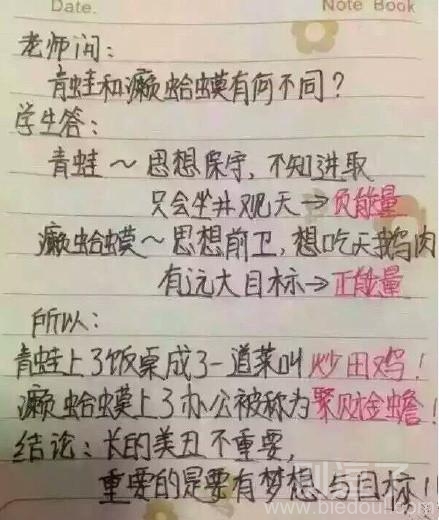 Date.
Note Book
老师问：
青蛙和癞蛤蟆有何不同？
学生答：
青蛙～思想保守，不知进取
只会坐井观天→负能量
癞蛤蟆～思想前卫，想吃天鹅肉
有远大目标→正能量
所以：
青蛙上了饭桌成了一道菜叫炒田鸡！
癞蛤蟆上了办公被称为聚财金蟾！
结论：长的美丑不重要，
重要的是要有梦想与目标！！
www.biedoul.com